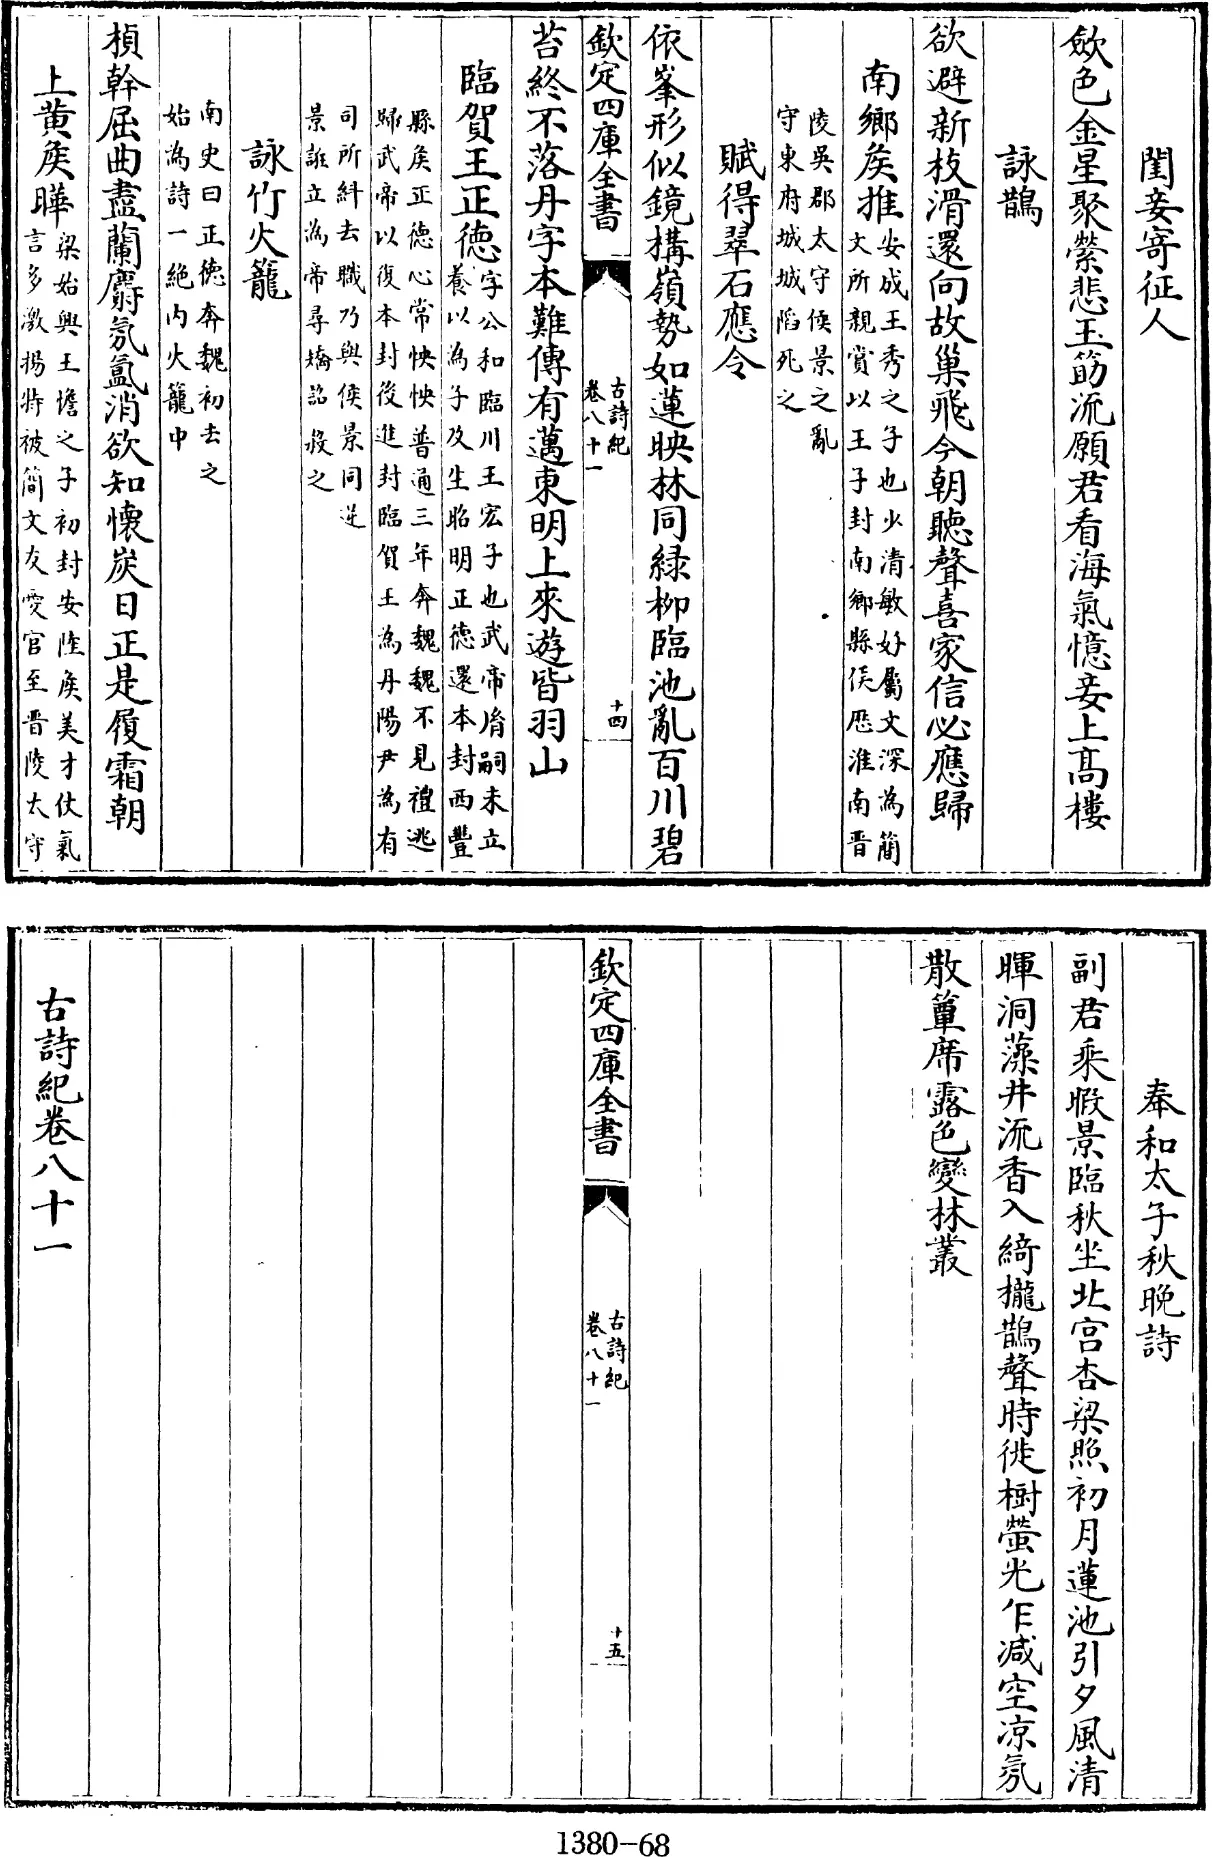 閨妾寄征人
斂色金星聚縈悲玉筯流願君看海氣憶妾上髙樓
詠鵲
欲避新枝滑還向故巢飛今朝聽聲喜家信必應歸
南鄉侯推
安成王秀之子也少清敏好屬文深為簡
文所親賞以王子封南鄉縣侯歴淮南晉
陵吳郡太守侯景之亂
守東府城城陷死之
賦得翠石應令
依峯形似鏡構嶺勢如蓮映林同緑柳臨池亂百川碧
欽定四庫全書
古詩紀
卷八十一
十四
苔終不落丹字本難傳有邁東明上來遊皆羽山
臨賀王正德
字公和臨川王宏子也武帝胤嗣未立
養以為子及生昭明正德還本封西豐
縣侯正德心常怏怏普通三年奔魏魏不見禮逃
歸武帝以復本封後進封臨賀王為丹陽尹為有
司所糾去職乃與侯景同逆
景誑立為帝尋矯詔殺之
詠竹火籠
南史曰正徳奔魏初去之
始為詩一絶内火籠中
楨幹屈曲盡蘭麝氛氲消欲知懷炭日正是履霜朝
上黄侯曄
梁始興王憺之子初封安陸侯美才仗氣
言多激揚特被簡文友愛官至晉陵太守
奉和太子秋晚詩
副君乘暇景臨秋坐北宫杏梁照初月蓮池引夕風清
暉洞藻井流香入綺櫳鵲聲時徙樹螢光乍减空凉氛
散簟席露色變林叢
欽定四庫全書
古詩紀
卷八十一
十五
古詩紀卷八十一
1380-68